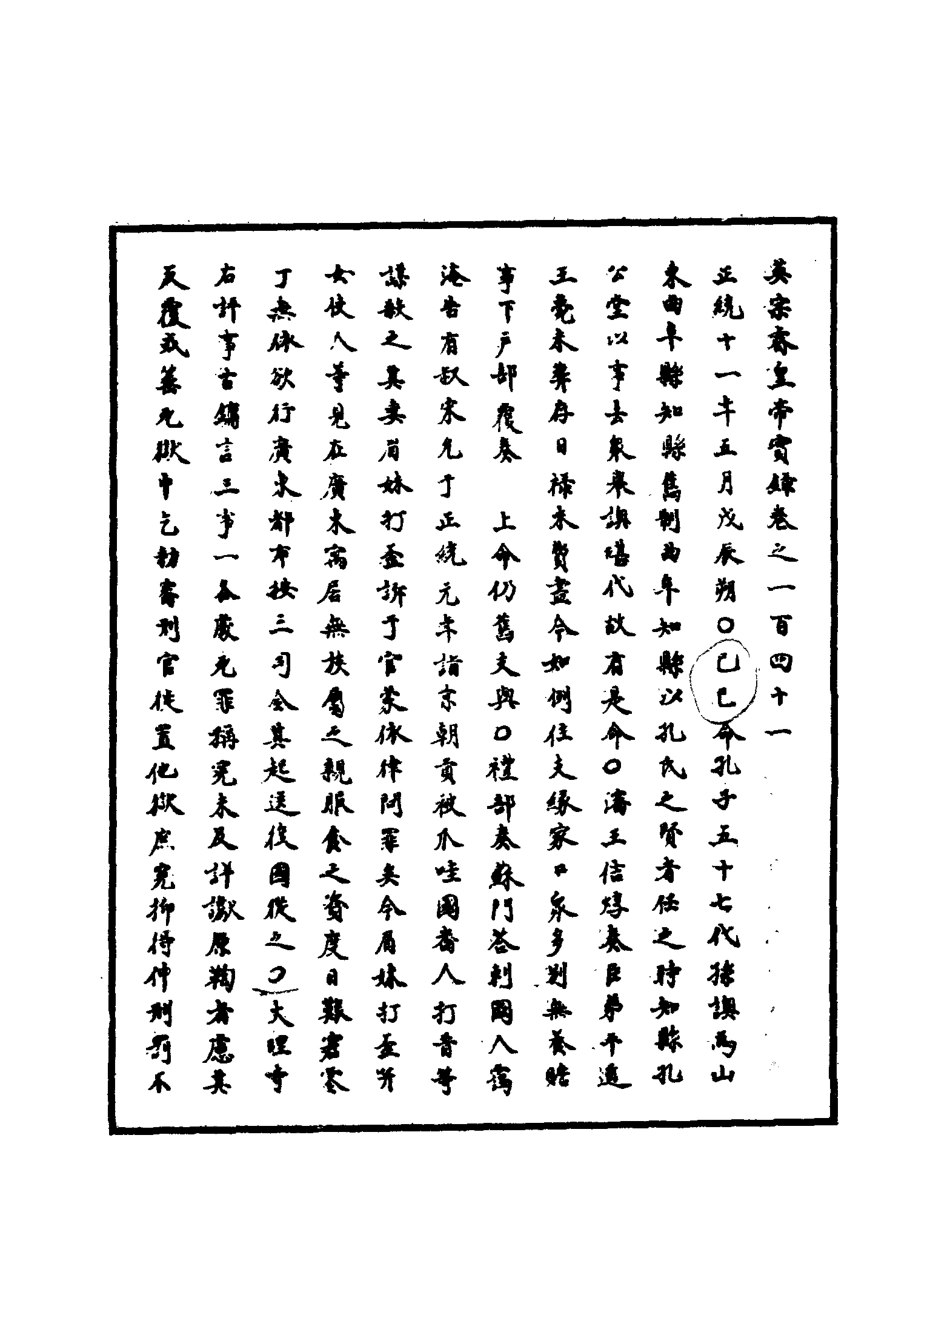 英宗睿皇帝實錄卷之一百四十一
正統十一年五月戊辰朔○己巳命孔子五十七代孫諟為山
東曲阜縣知縣舊制曲阜知縣以孔氏之賢者任之時知縣孔
公堂以事去衆舉諟堪代故有是命○瀋王佶焞奏臣弟平遙
王薨未葬存日祿未賫盡令如例住支緣家口衆多別無養贍
事下戶部覆奏　上命仍舊支與○禮部奏蘇門荅剌國人靄
淹告有叔宋允于正統元年詣京朝貢被爪哇國畨人打昔等
謀殺之其妻眉妹打歪訴于官蒙依律問罪矣今眉妹打歪并
女使人等見在廣東寓居無族屬之親服食之資度日艱窘零
丁無依欲行廣東都布按三司令其起送後國從之○大理寺
右評事古鏞言三事一各處死罪稱冤未及詳讞原鞫者慮其
反覆或蓄死獄中乞勑審刑官徙置他獄庶冤抑得伸刑罰不